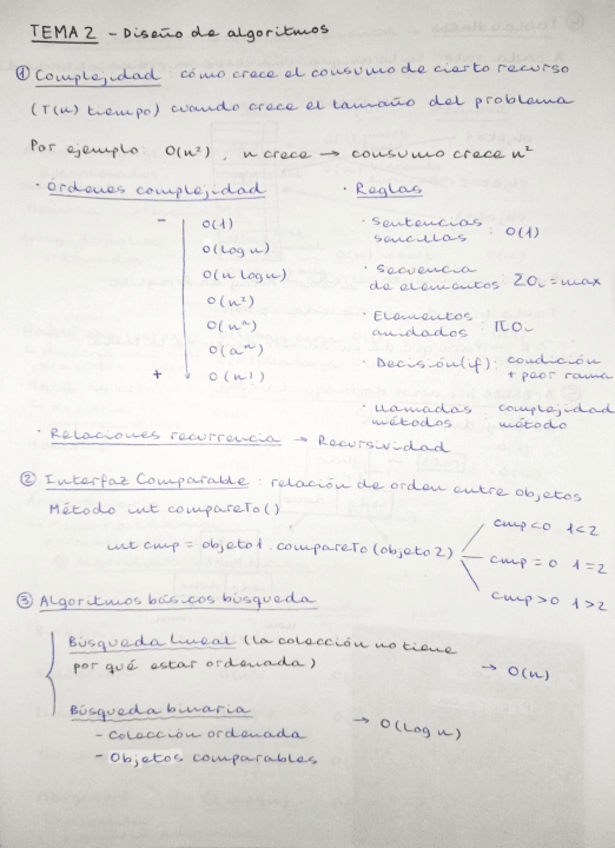 TEMA 2 - Diseño de algoritmos
① Complejidad : cómo crece el consumo de cierto recurso
(T(n) tiempo) cuando crece el tamaño del problema
Por ejemplo: O(n²). n crece → consumo crece n²
· Órdenes complejidad
- O(1)
O(log n)
O(n log n)
O(n²)
O(nᵃ)
O(aⁿ)
+ O(n!)
· Reglas
· Sentencias sencillas : O(1)
· Secuencia de elementos ΣOi = max
· Elementos anidados : ΠOi
· Decisión(if): condición + peor rama
· Llamadas métodos : complejidad método
· Relaciones recurrencia → Recursividad
② Interfaz Comparable : relación de orden entre objetos
Método int compareTo()
int cmp = objeto1.compareTo(objeto2)
cmp<0 1<2
cmp = 0 1=2
cmp>0 1>2
③ Algoritmos básicos búsqueda
Búsqueda lineal (la colección no tiene
por qué estar ordenada) → O(n)
Búsqueda binaria → O(log n)
- Colección ordenada
- Objetos comparables